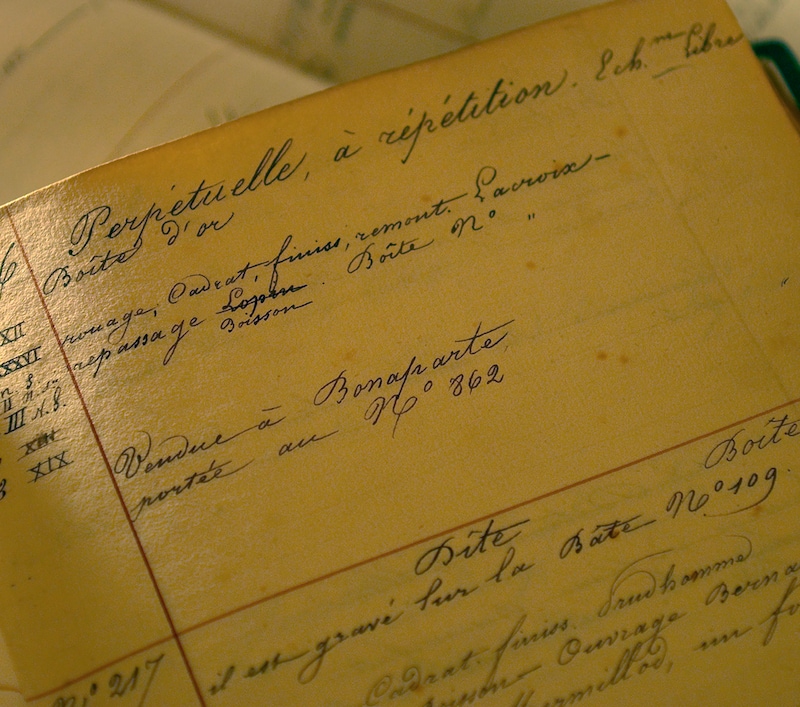 Perpétuelle, à répétition. Ech.me Libre
Boîte d'or
rouage, Cadrat. finiss, remont. Lacroix-
repassage Lopin Boîte N° "
Boisson
XII
XXVI
III N.B.
XIII
XIX
Vendue à Bonaparte
portée au N° 862
Boîte
Dite
il est gravé sur la Bâte N° 109.
N° 217
Cadrat. finiss. Prudhomme
Boisson Ouvrage Berna
un fo